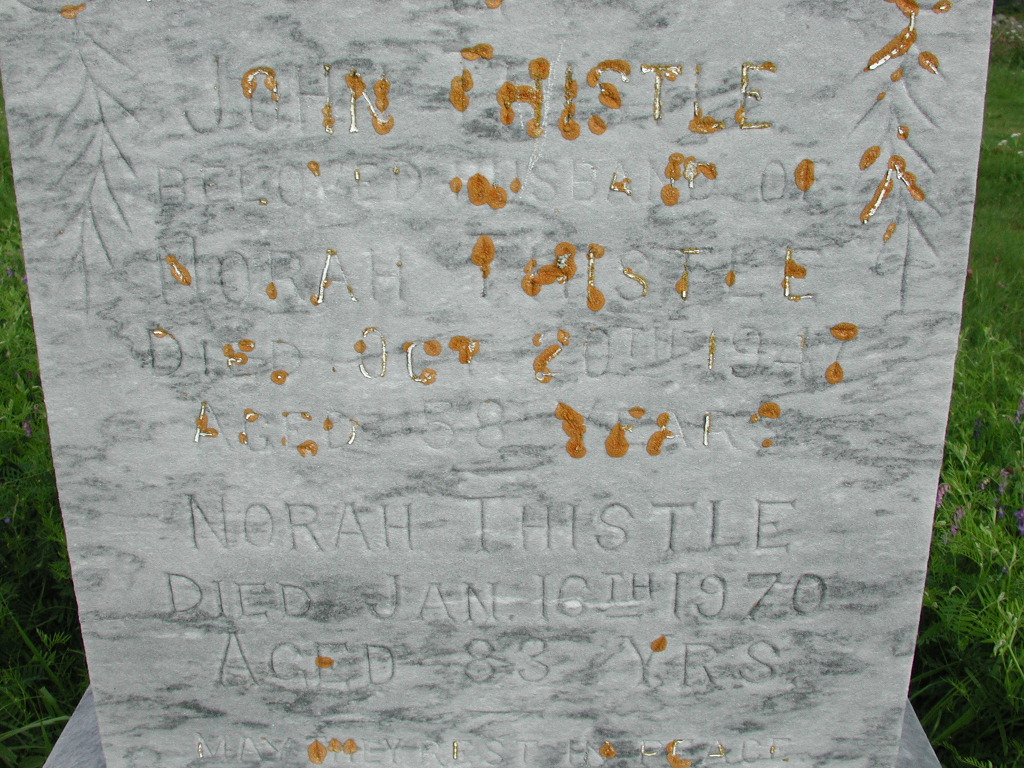 JOHN THISTLE
BELOVED HUSBAND OF
NORAH THISTLE
DIED OCT. 20TH 1947
AGED 58 YEARS
NORAH THISTLE
DIED JAN. 16TH 1970
AGED 83 YRS
MAY THEY REST IN PEACE